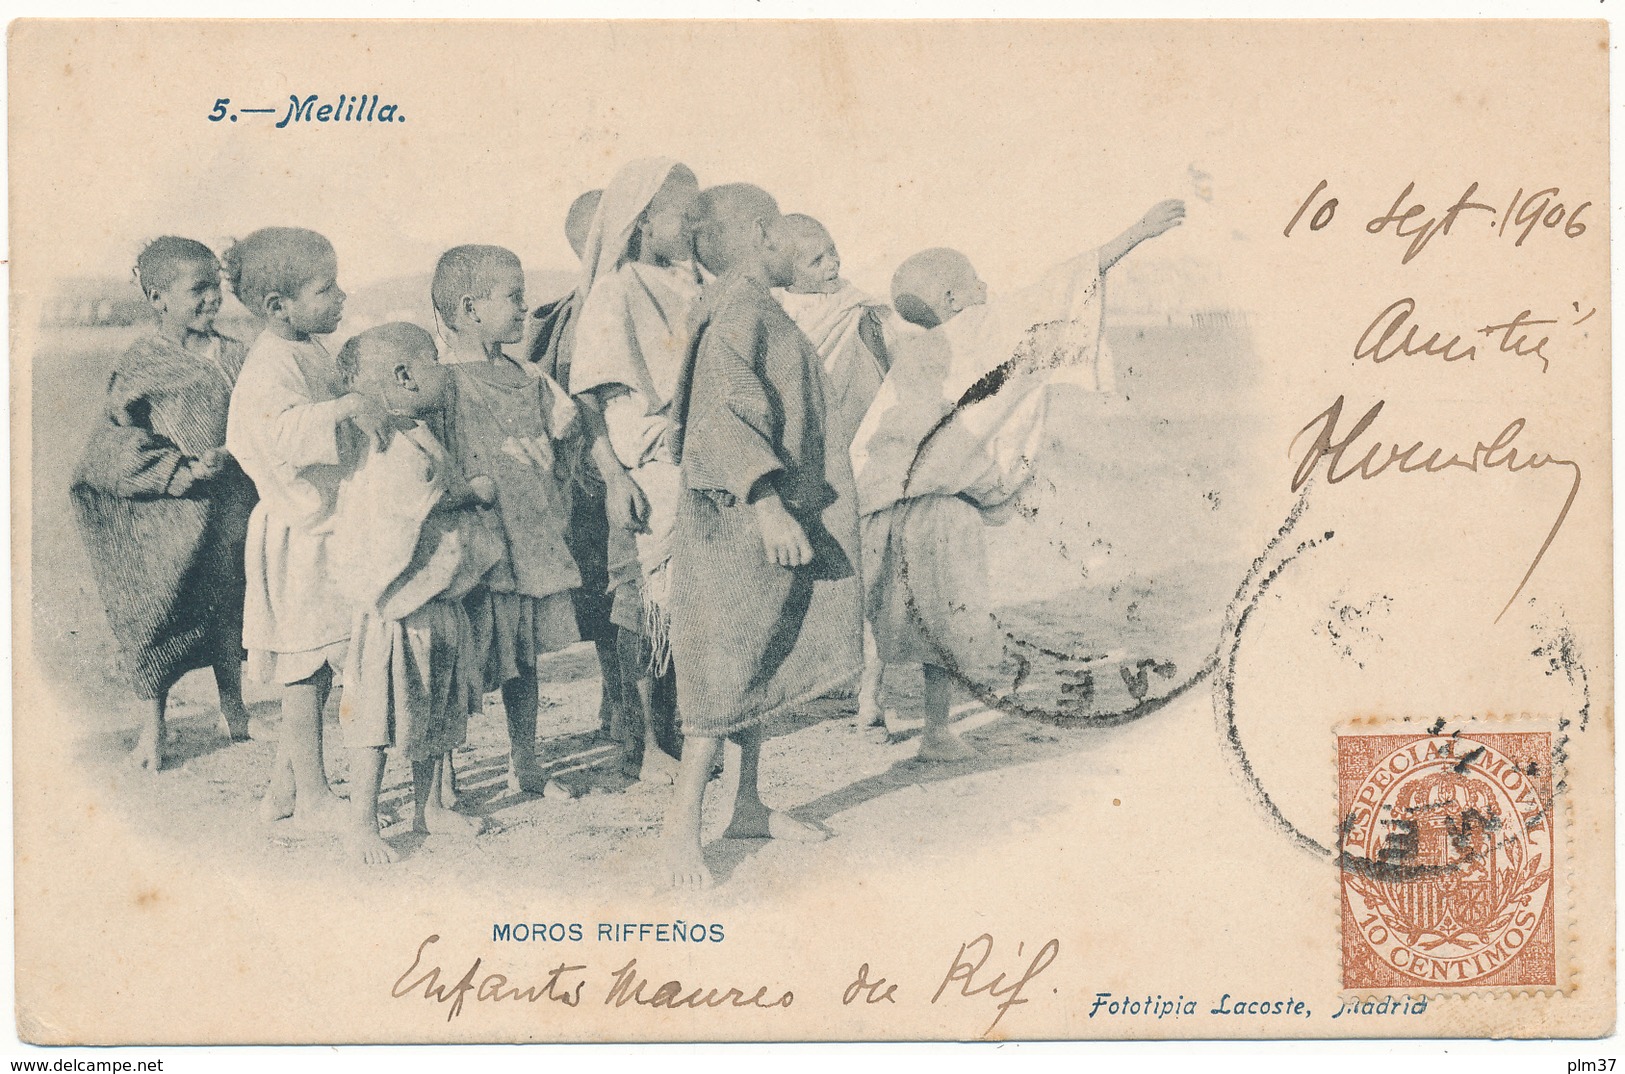 5.—Melilla.
10 Sept. 1906
Amitié
MOROS RIFFEÑOS
Enfants Maures du Rif.
ESPECIAL MÓVIL
10 CENTIMOS
Fototipia Lacoste, Madrid
www.delcampe.net
plm37